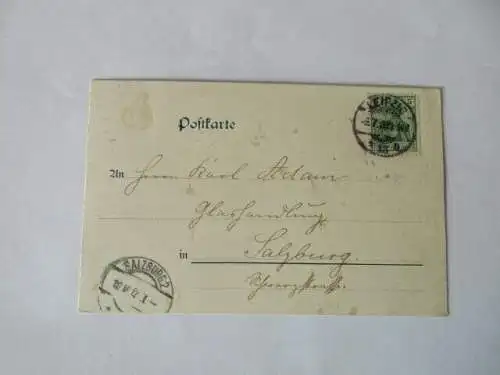 LEIPZIG
Postkarte
An Herrn Karl Adam
Glashandlung
in Salzburg.
SALZBURG 2